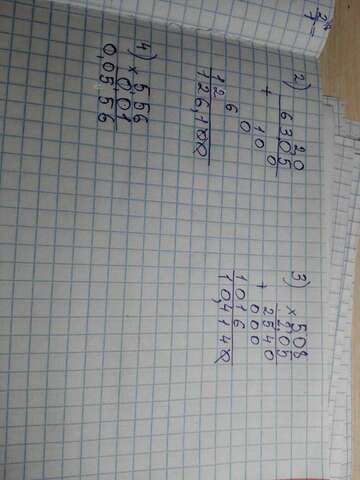 2) 20
6305
+ 0
10
0
6
12
126,100
3) × 508
2,05
2540
+ 000
1016
10,4140
4) × 556
0,01
0,0556